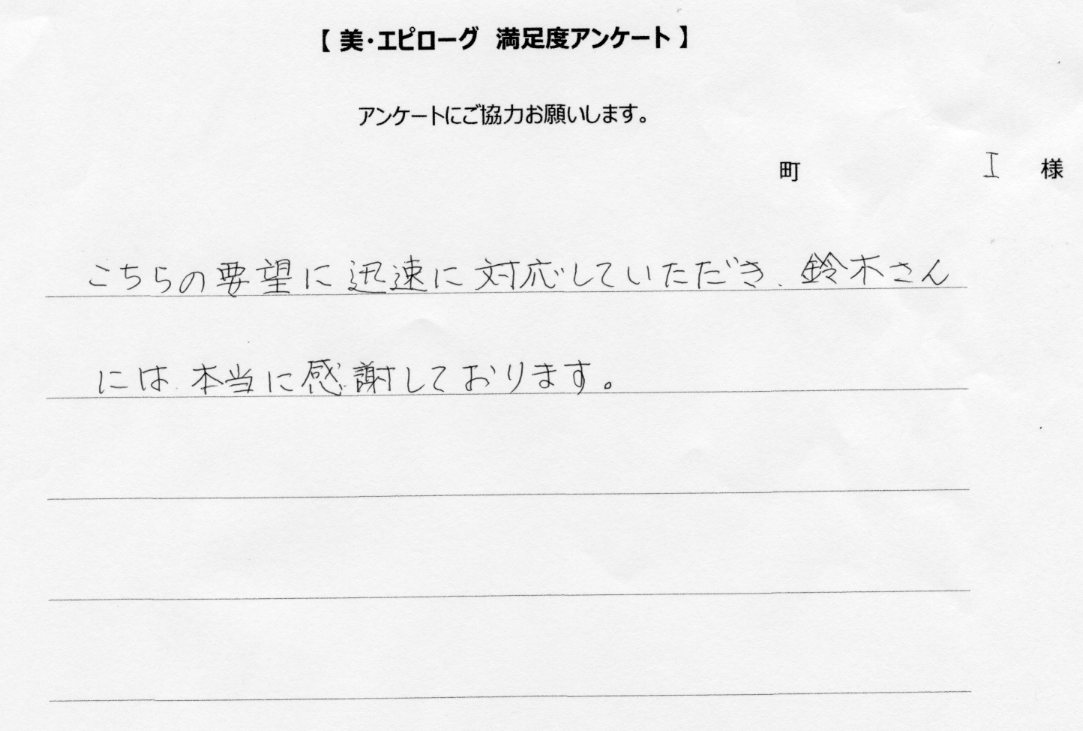 【 美・エピローグ 満足度アンケート 】
アンケートにご協力お願いします。
町 I 様
こちらの要望に迅速に対応していただき、鈴木さん
には本当に感謝しております。